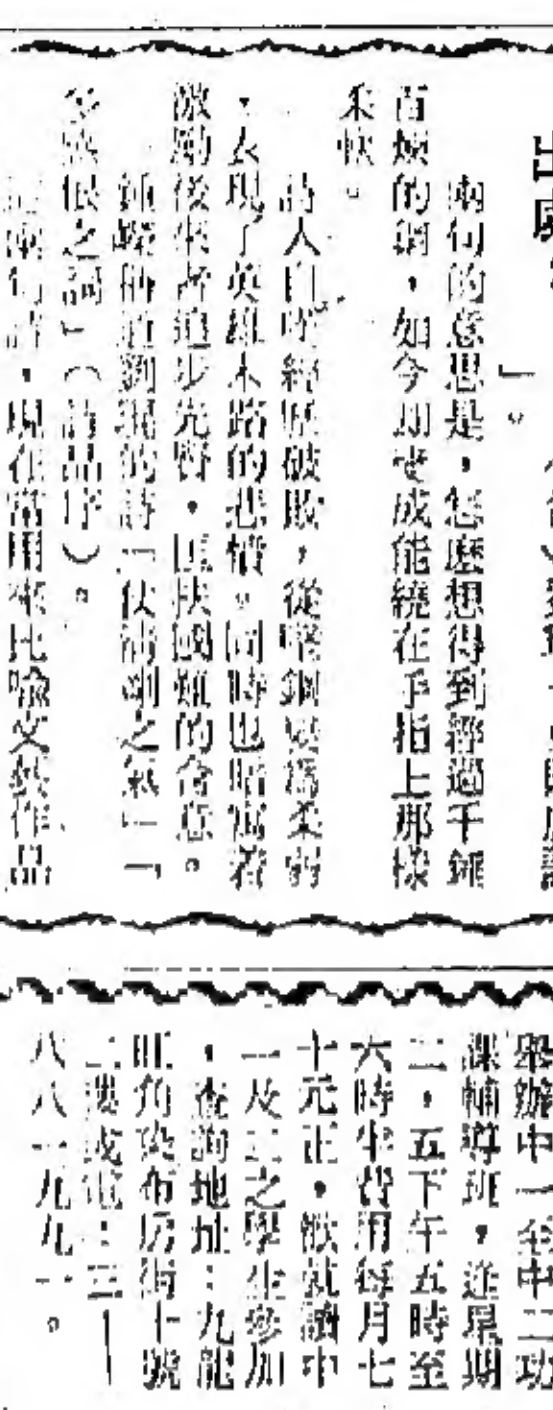 出處：
」。
兩句的意思是，怎麼想得到經過千錘
百煉的鋼，如今却變成能繞在手指上那樣
柔軟。
詩人自嘆經歷破敗，從堅鋼變爲柔弱
，表現了英雄末路的悲憤。同時也暗寓着
激勵後來者追步先賢，匡扶國難的含意。
鍾嶸稱道劉琨的詩「仗清剛之氣」「
多感恨之詞」（詩品序）。
這兩句詩，現在常用來比喻文藝作品
舉辦中一至中二功
課輔導班，逢星期
二，五下午五時至
六時半費用每月七
十元正，歡就讀中
一及二之學生參加
，查詢地址：九龍
旺角染布房街十號
二樓或電：三—
八八一九九一。